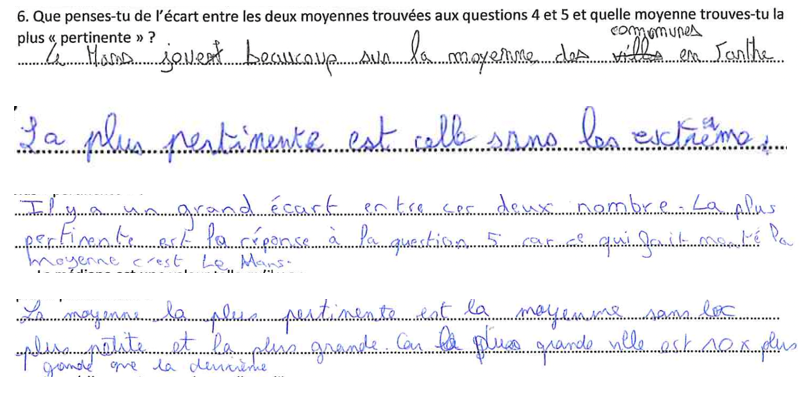 6. Que penses-tu de l'écart entre les deux moyennes trouvées aux questions 4 et 5 et quelle moyenne trouves-tu la
plus « pertinente » ?
communes
Le Mans jouent beaucoup sur la moyenne des villes en Sarthe
La plus pertinente est celle sans les extrême.
Il y a un grand écart entre ces deux nombre. La plus
pertinente est la réponse à la question 5 car ce qui fait monté la
moyenne c'est Le Mans.
La moyenne la plus pertinente est la moyenne sans les
plus petite et la plus grande. Car la plus grande ville est 10x plus
grande que la deuxième